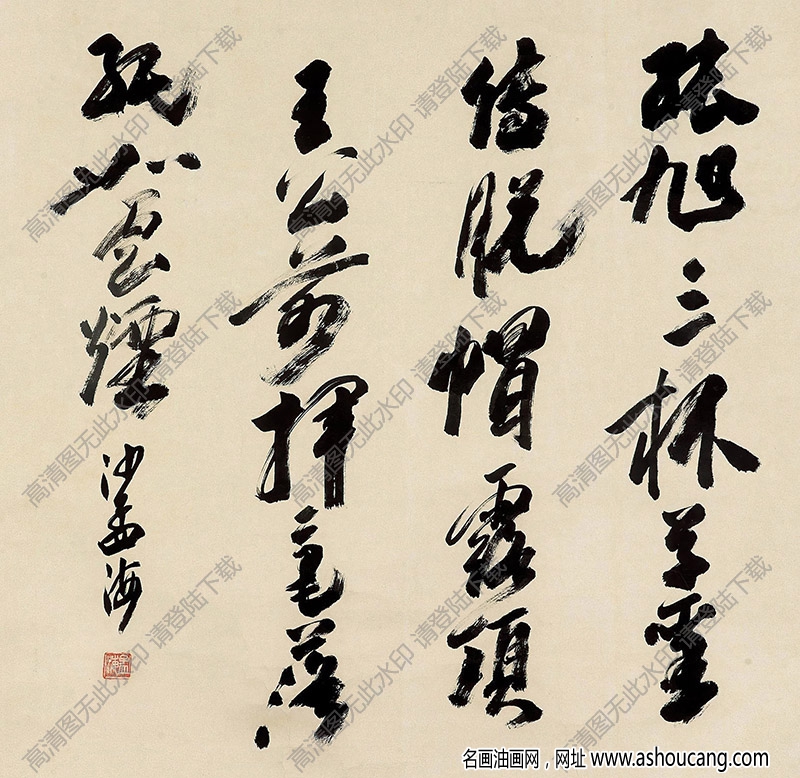 張旭三杯草聖
傳脫帽露頂
王公前揮毫落
紙如雲煙
沙孟海
高清图无此水印 请登陆下载
名画油画网，网址 www.ashoucang.com